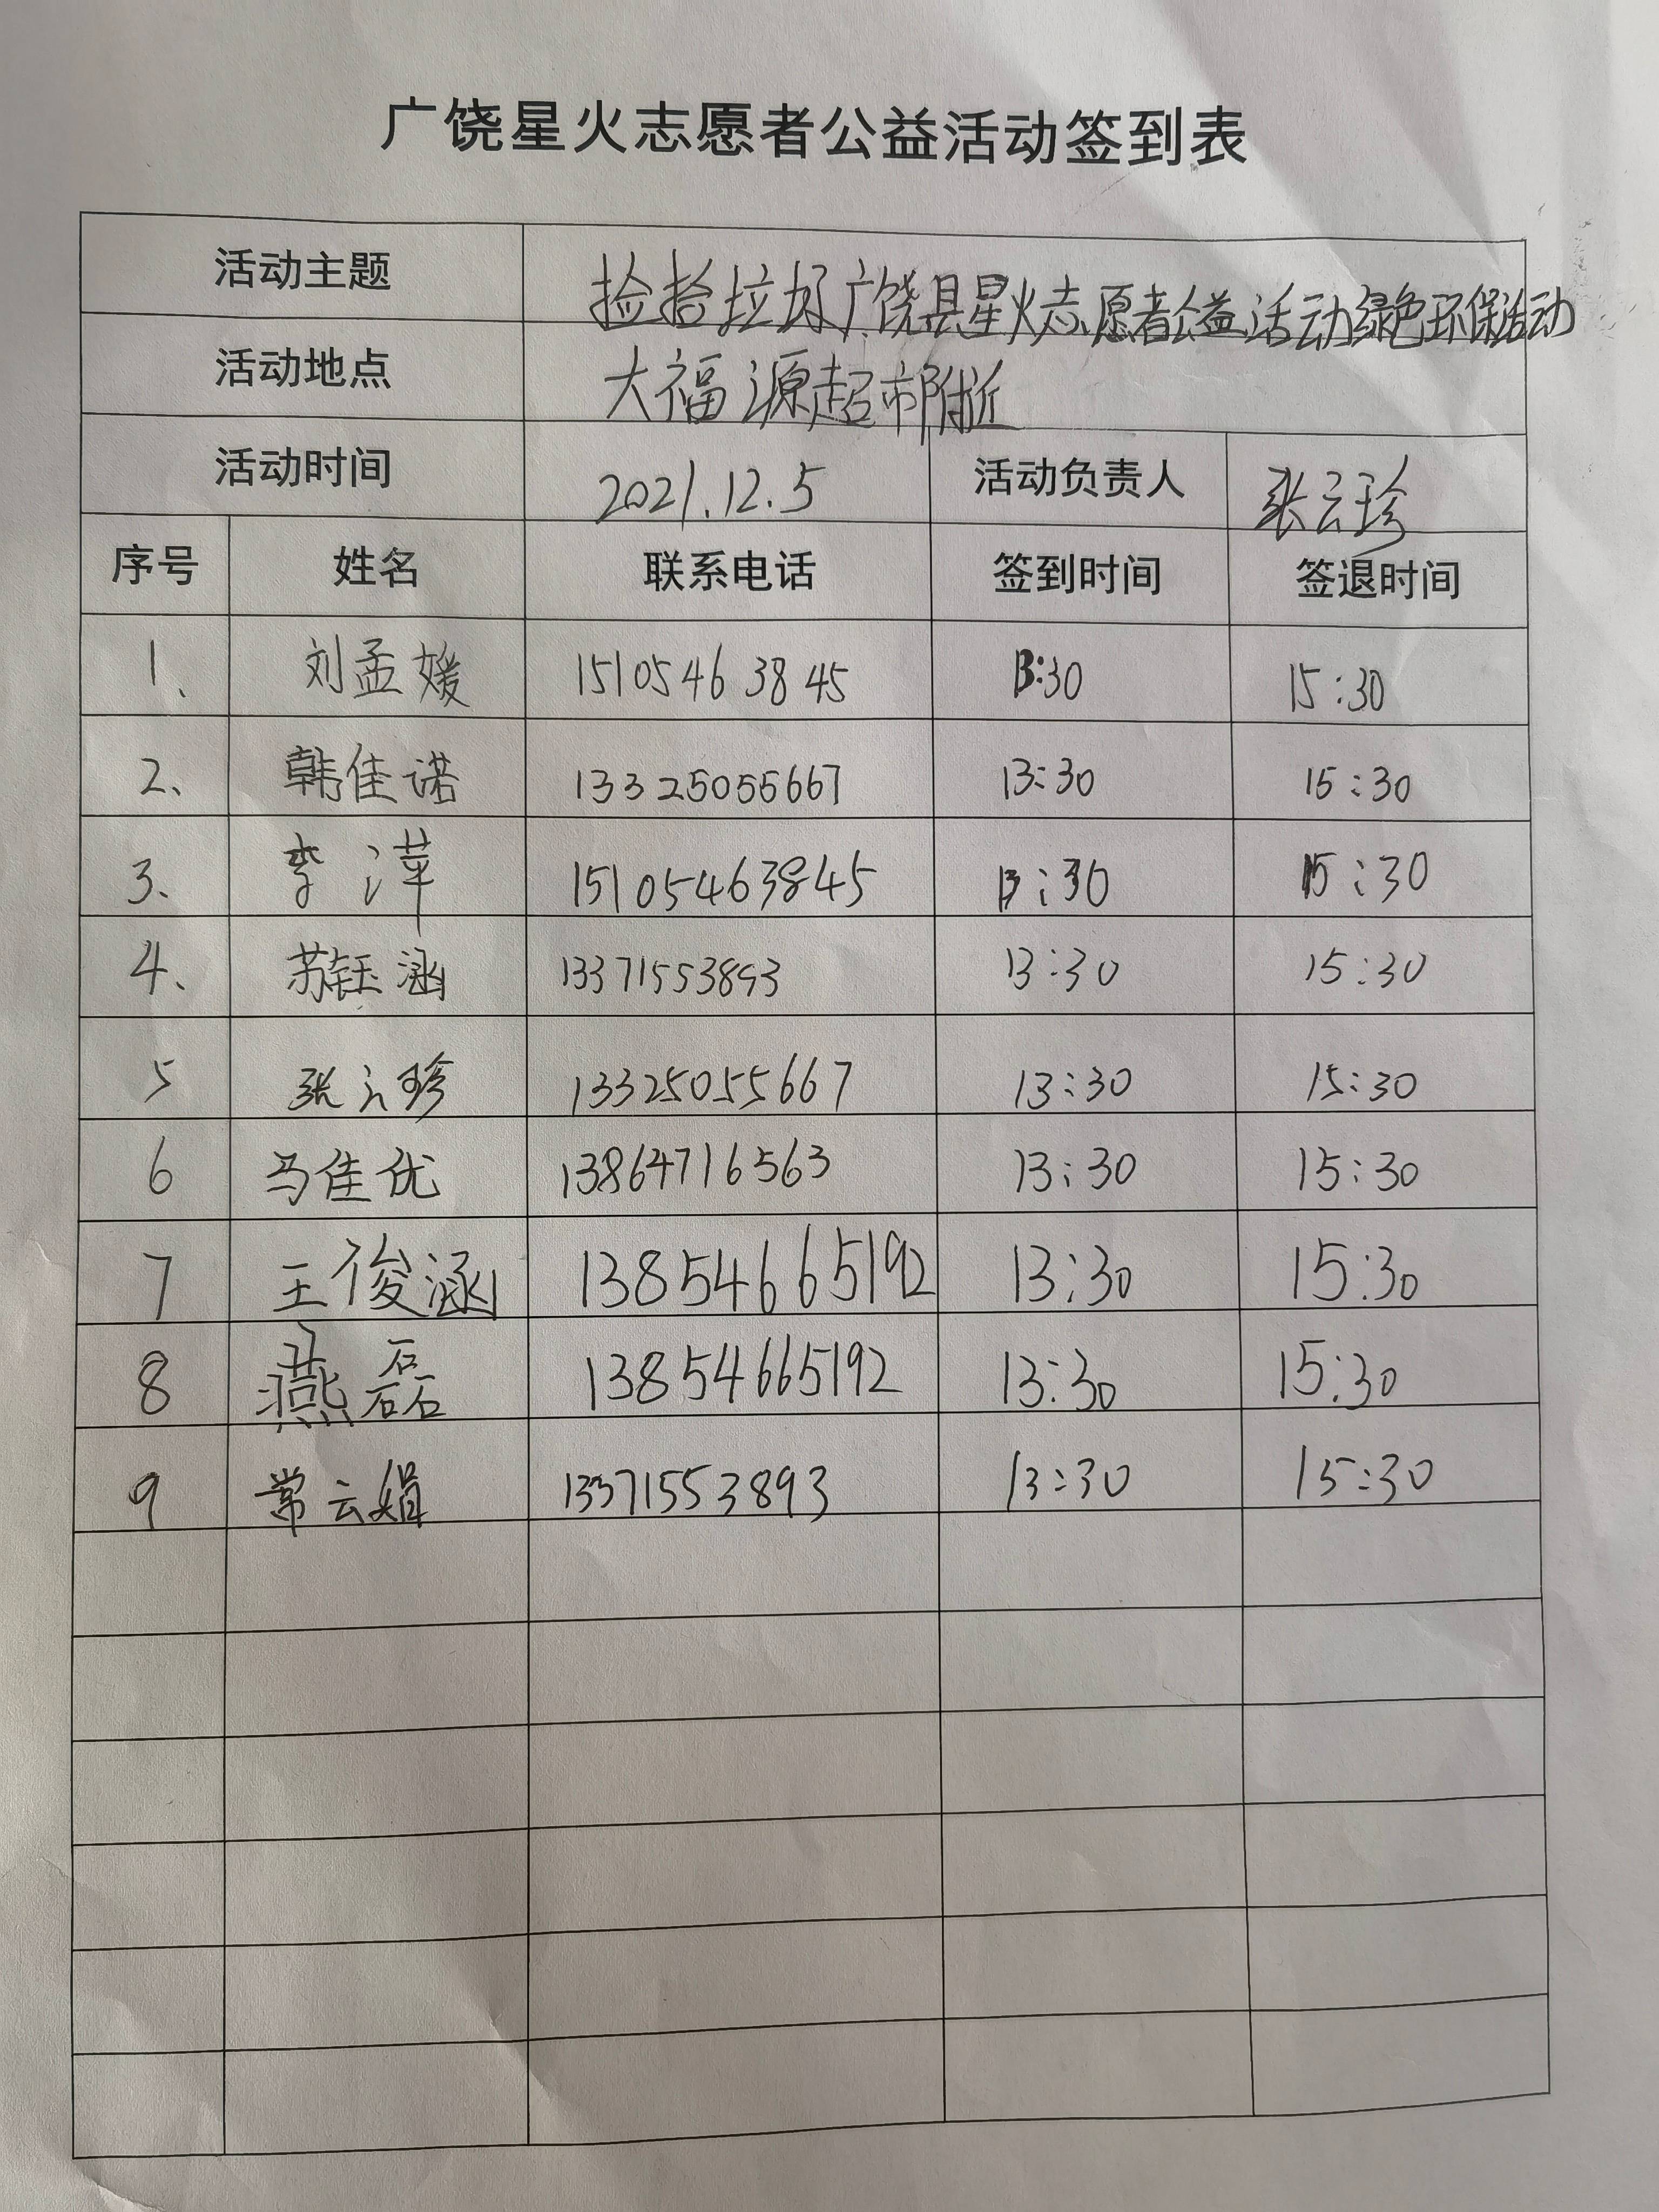 广饶星火志愿者公益活动签到表
活动主题 捡拾垃圾广饶县星火志愿者公益活动绿色环保活动
活动地点 大福源超市附近
活动时间 2021.12.5 活动负责人 张云珍
序号 姓名 联系电话 签到时间 签退时间
1、 刘孟媛 15105463845 13:30 15:30
2、 韩佳诺 13325055667 13:30 15:30
3、 李萍 15105463845 13:30 15:30
4、 苏钰涵 13371553893 13:30 15:30
5 张云珍 13325055667 13:30 15:30
6 马佳优 13864716563 13:30 15:30
7 王俊涵 13854665192 13:30 15:30
8 燕磊 13854665192 13:30 15:30
9 常云娟 13371553893 13:30 15:30